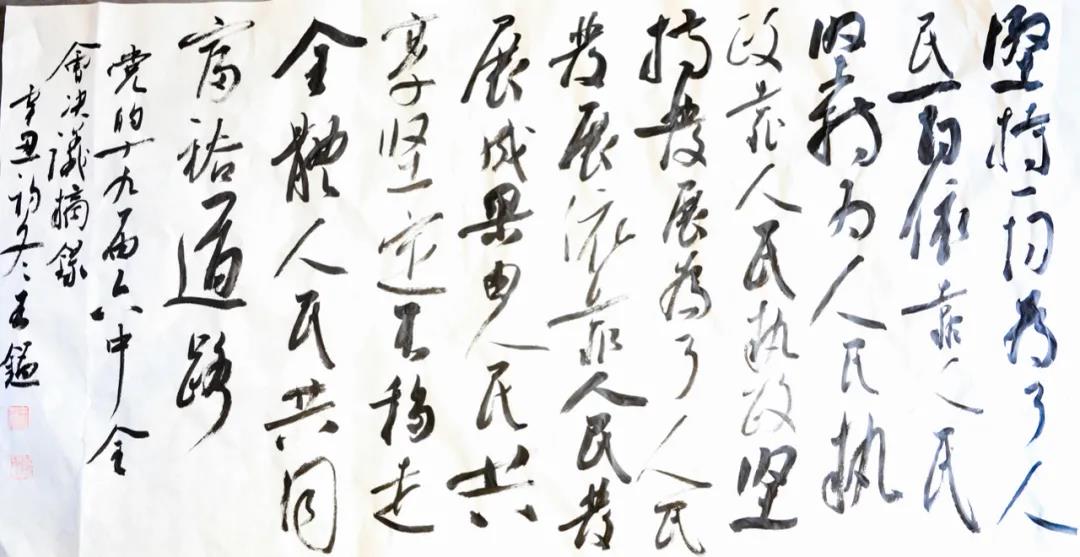 堅持一切為了人
民一切依靠人民
堅持为人民執
政靠人民執政坚
持發展為了人民
發展依靠人民發
展成果由人民共
享坚定不移走
全體人民共同
富裕道路
党的十九届六中全
會决議摘錄
辛丑初冬王鎰